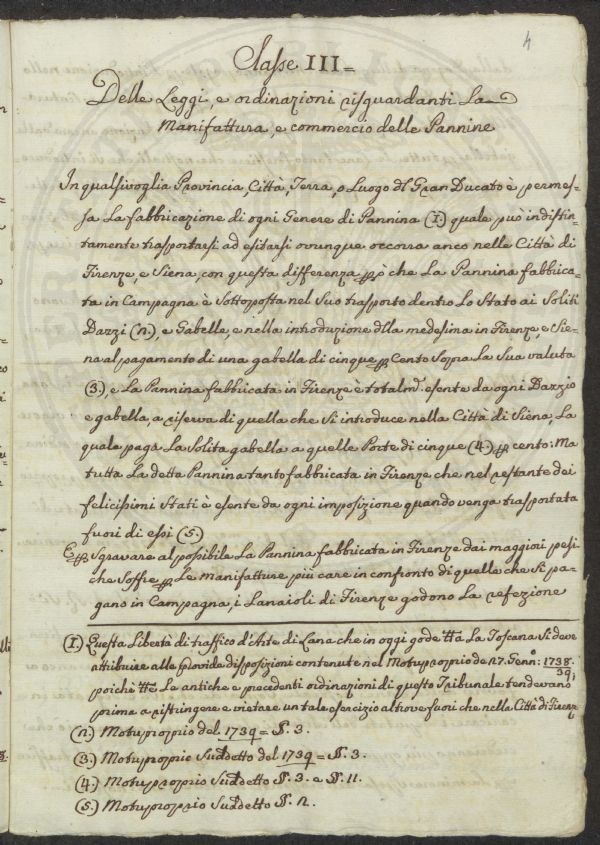 4
Classe III=
Delle Leggi, e ordinazioni risguardanti La
Manifattura, e commercio delle Pannine
In qualsivoglia Provincia, Città, Terra, o Luogo dl Gran Ducato è permes-
sa La fabbricazione di ogni Genere di Pannina (1.) quale può indistin-
tamente trasportarsi ad esitarsi ovunque occorra anco nelle Città di
Firenze, e Siena, con questa differenza pò che La Pannina fabbrica-
ta in Campagna è Sottoposta nel Suo trasporto dentro Lo Stato ai Soliti
Dazzi (2.), e Gabelle, e nella introduzione dlla medesima in Firenze, e Sie-
na al pagamento di una gabella di cinque p Cento Sopra La Sua valuta
(3.), e La Pannina fabbricata in Firenze è totalmte esente da ogni Dazzio
e gabella, a riserva di quella che Si introduce nella Città di Siena, La
quale paga La Solita gabella a quelle Porte di cinque (4.) p cento: Ma
tutta La detta Pannina tanto fabbricata in Firenze che nel restante dei
felicissimi Stati è esente da ogni imposizione quando venga trasportata
fuori di essi (5.)
E p Sgravare al possibile La Pannina fabbricata in Firenze dai maggiori pesi
che Soffre p Le manifatture più care in confronto di quelle che Si pa-
gano in Campagna, i Lanaioli di Firenze godono La refezione
(1.) Questa Libertà di traffico d'Arte di Lana che in oggi gode tta La Toscana Si deve
attribuire alle provide disposizioni contenute nel Motuproprio de 27. Genno: 1738/39;
poichè tte Le antiche e precedenti ordinazioni di questo Tribunale tendevano
prima a ristringere e vietare un tale esercizio altrove fuori che nella Città di Firenze
(2.) Motuproprio del 1739 = §. 3.
(3.) Motuproprio Suddetto del 1739 = §. 3.
(4.) Motuproprio Suddetto §. 3. e §. 11.
(5.) Motuproprio Suddetto §. 2.